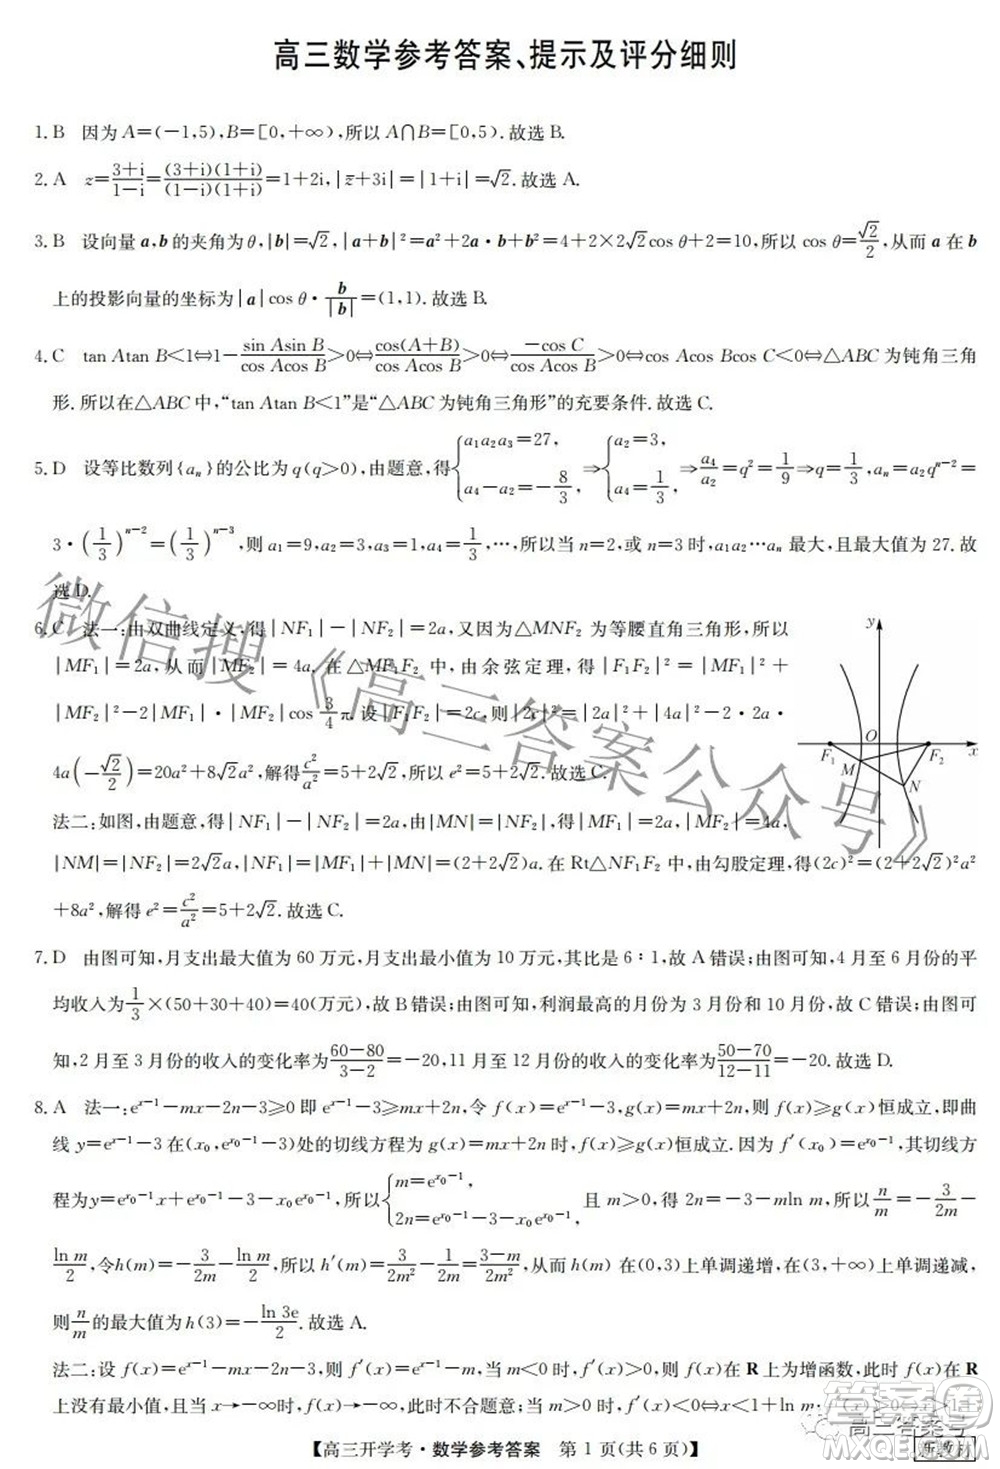 高三数学参考答案、提示及评分细则
1. B 因为 A=(-1,5),B=[0,+∞),所以 A∩B=[0,5).故选 B.
2. A z=\frac{3+i}{1-i}=\frac{(3+i)(1+i)}{(1-i)(1+i)}=1+2i,|\overline{z}+3i|=|1+i|=√2.故选 A.
3. B 设向量 a,b 的夹角为 θ,|b|=√2,|a+b|²=a²+2a·b+b²=4+2×2√2cos θ+2=10,所以 cos θ=\frac{√2}{2},从而 a 在 b
上的投影向量的坐标为|a|cos θ·\frac{b}{|b|}=(1,1).故选 B.
4. C tan Atan B<1⇔1-\frac{sin Asin B}{cos Acos B}>0⇔\frac{cos(A+B)}{cos Acos B}>0⇔\frac{-cos C}{cos Acos B}>0⇔cos Acos Bcos C<0⇔△ABC 为钝角三角
形.所以在△ABC 中,“tan Atan B<1”是“△ABC 为钝角三角形”的充要条件.故选 C.
5. D 设等比数列{aₙ}的公比为 q(q>0),由题意,得{a₁a₂a₃=27, a₄-a₂=-\frac{8}{3}⇒{a₂=3, a₄=\frac{1}{3}⇒\frac{a₄}{a₂}=q²=\frac{1}{9}⇒q=\frac{1}{3},aₙ=a₂qⁿ⁻²=
3·(\frac{1}{3})ⁿ⁻²=(\frac{1}{3})ⁿ⁻³,则 a₁=9,a₂=3,a₃=1,a₄=\frac{1}{3},…,所以当 n=2,或 n=3 时,a₁a₂…aₙ 最大,且最大值为 27.故
选 D.
6. C 法一:由双曲线定义,得|NF₁|-|NF₂|=2a,又因为△MNF₂ 为等腰直角三角形,所以
|MF₁|=2a,从而|MF₂|=4a.在△MF₁F₂ 中,由余弦定理,得|F₁F₂|²=|MF₁|²+
|MF₂|²-2|MF₁|·|MF₂|cos \frac{3}{4}π.设|F₁F₂|=2c,则|2c|²=|2a|²+|4a|²-2·2a·
4a(-\frac{√2}{2})=20a²+8√2a²,解得\frac{c²}{a²}=5+2√2.所以 e²=5+2√2.故选 C.
法二:如图,由题意,得|NF₁|-|NF₂|=2a,由|MN|=|NF₂|,得|MF₁|=2a,|MF₂|=4a,
|NM|=|NF₂|=2√2a,|NF₁|=|MF₁|+|MN|=(2+2√2)a.在 Rt△NF₁F₂ 中,由勾股定理,得(2c)²=(2+2√2)²a²
+8a²,解得 e²=\frac{c²}{a²}=5+2√2.故选 C.
y
O
x
F₁
F₂
M
N
7. D 由图可知,月支出最大值为 60 万元,月支出最小值为 10 万元,其比是 6∶1,故 A 错误;由图可知,4 月至 6 月份的平
均收入为\frac{1}{3}×(50+30+40)=40(万元),故 B 错误;由图可知,利润最高的月份为 3 月份和 10 月份,故 C 错误;由图可
知,2 月至 3 月份的收入的变化率为\frac{60-80}{3-2}=-20,11 月至 12 月份的收入的变化率为\frac{50-70}{12-11}=-20.故选 D.
8. A 法一:eˣ⁻¹-mx-2n-3≥0 即 eˣ⁻¹-3≥mx+2n,令 f(x)=eˣ⁻¹-3,g(x)=mx+2n,则 f(x)≥g(x)恒成立,即曲
线 y=eˣ⁻¹-3 在(x₀,e^{x₀-1}-3)处的切线方程为 g(x)=mx+2n 时,f(x)≥g(x)恒成立.因为 f′(x₀)=e^{x₀-1},其切线方
程为y=e^{x₀-1}x+e^{x₀-1}-3-x₀e^{x₀-1},所以{m=e^{x₀-1}, 2n=e^{x₀-1}-3-x₀e^{x₀-1} 且 m>0,得 2n=-3-mln m,所以\frac{n}{m}=-\frac{3}{2m}-
\frac{ln m}{2},令h(m)=-\frac{3}{2m}-\frac{ln m}{2},则 h′(m)=\frac{3}{2m²}-\frac{1}{2m}=\frac{3-m}{2m²},所以 h(m)在(0,3)上单调递增,在(3,+∞)上单调递减,
则\frac{n}{m}的最大值为 h(3)=-\frac{ln 3e}{2}.故选 A.
法二:设 f(x)=eˣ⁻¹-mx-2n-3,则 f′(x)=eˣ⁻¹-m,当 m<0 时,f′(x)>0,则 f(x)在 R 上为增函数,此时 f(x)在 R
上没有最小值,且当 x→-∞时,f(x)→-∞,此时不合题意.当 m>0 时,f′(x)<0⇔x<1+ln m,f′(x)>0⇔x>1+
【高三开学考·数学参考答案 第 1 页(共 6 页)】
新教材
微信搜《高三答案公众号》
高三答案号
答案圈
MXQE.COM